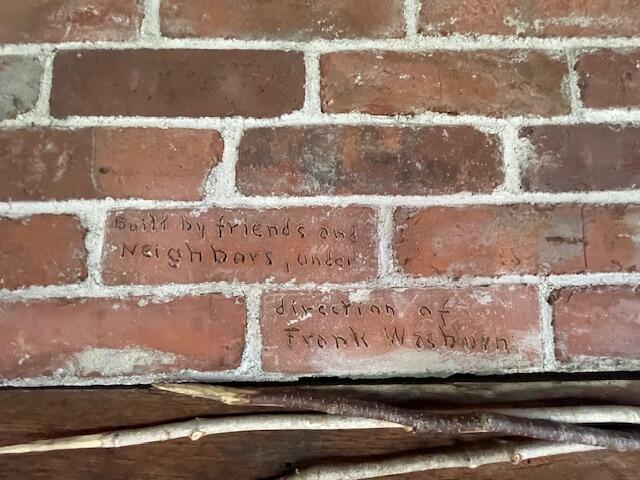 Built by friends and
Neighbors, under
direction of
Frank Washburn